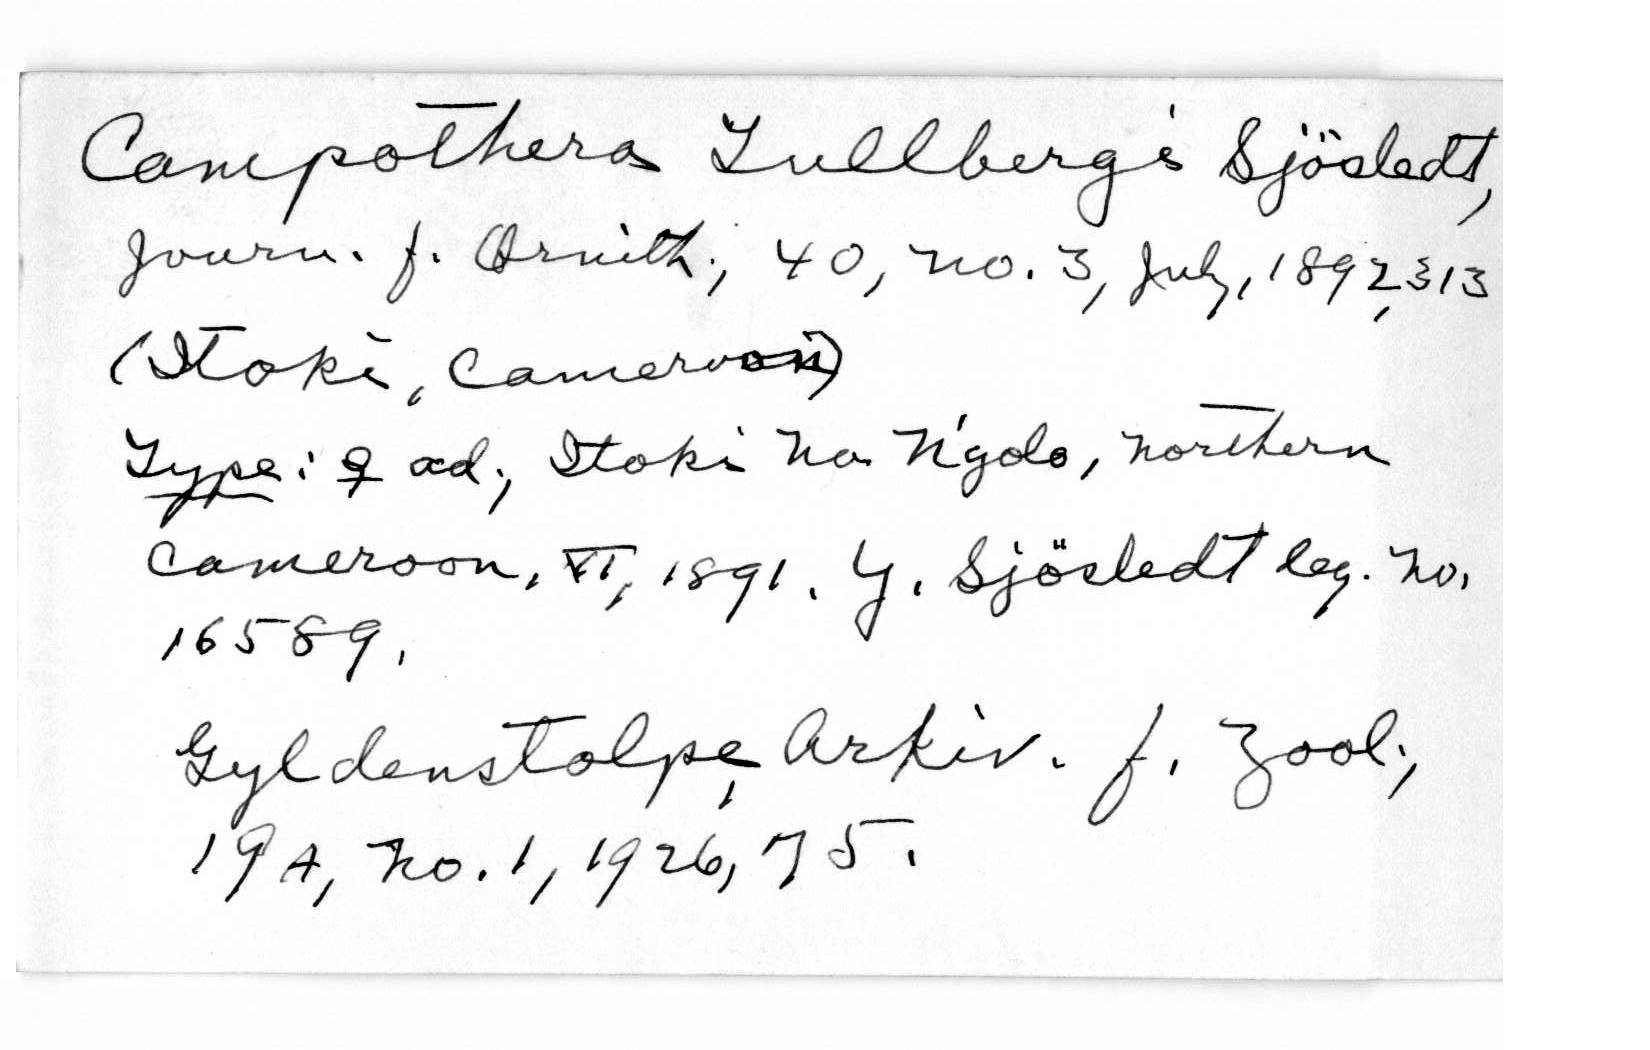 Campothera Tullbergi Sjöstedt,
Journ. f. Ornith., 40, no. 3, July, 1892, 313
(Itoki, Cameroon)
Type: ♀ ad., Itoki Na N'golo, northern
Cameroon, VI, 1891. Y. Sjöstedt leg. No.
16589.
Gyldenstolpe, Arkiv. f. Zool.,
19A, No. 1, 1926, 75.